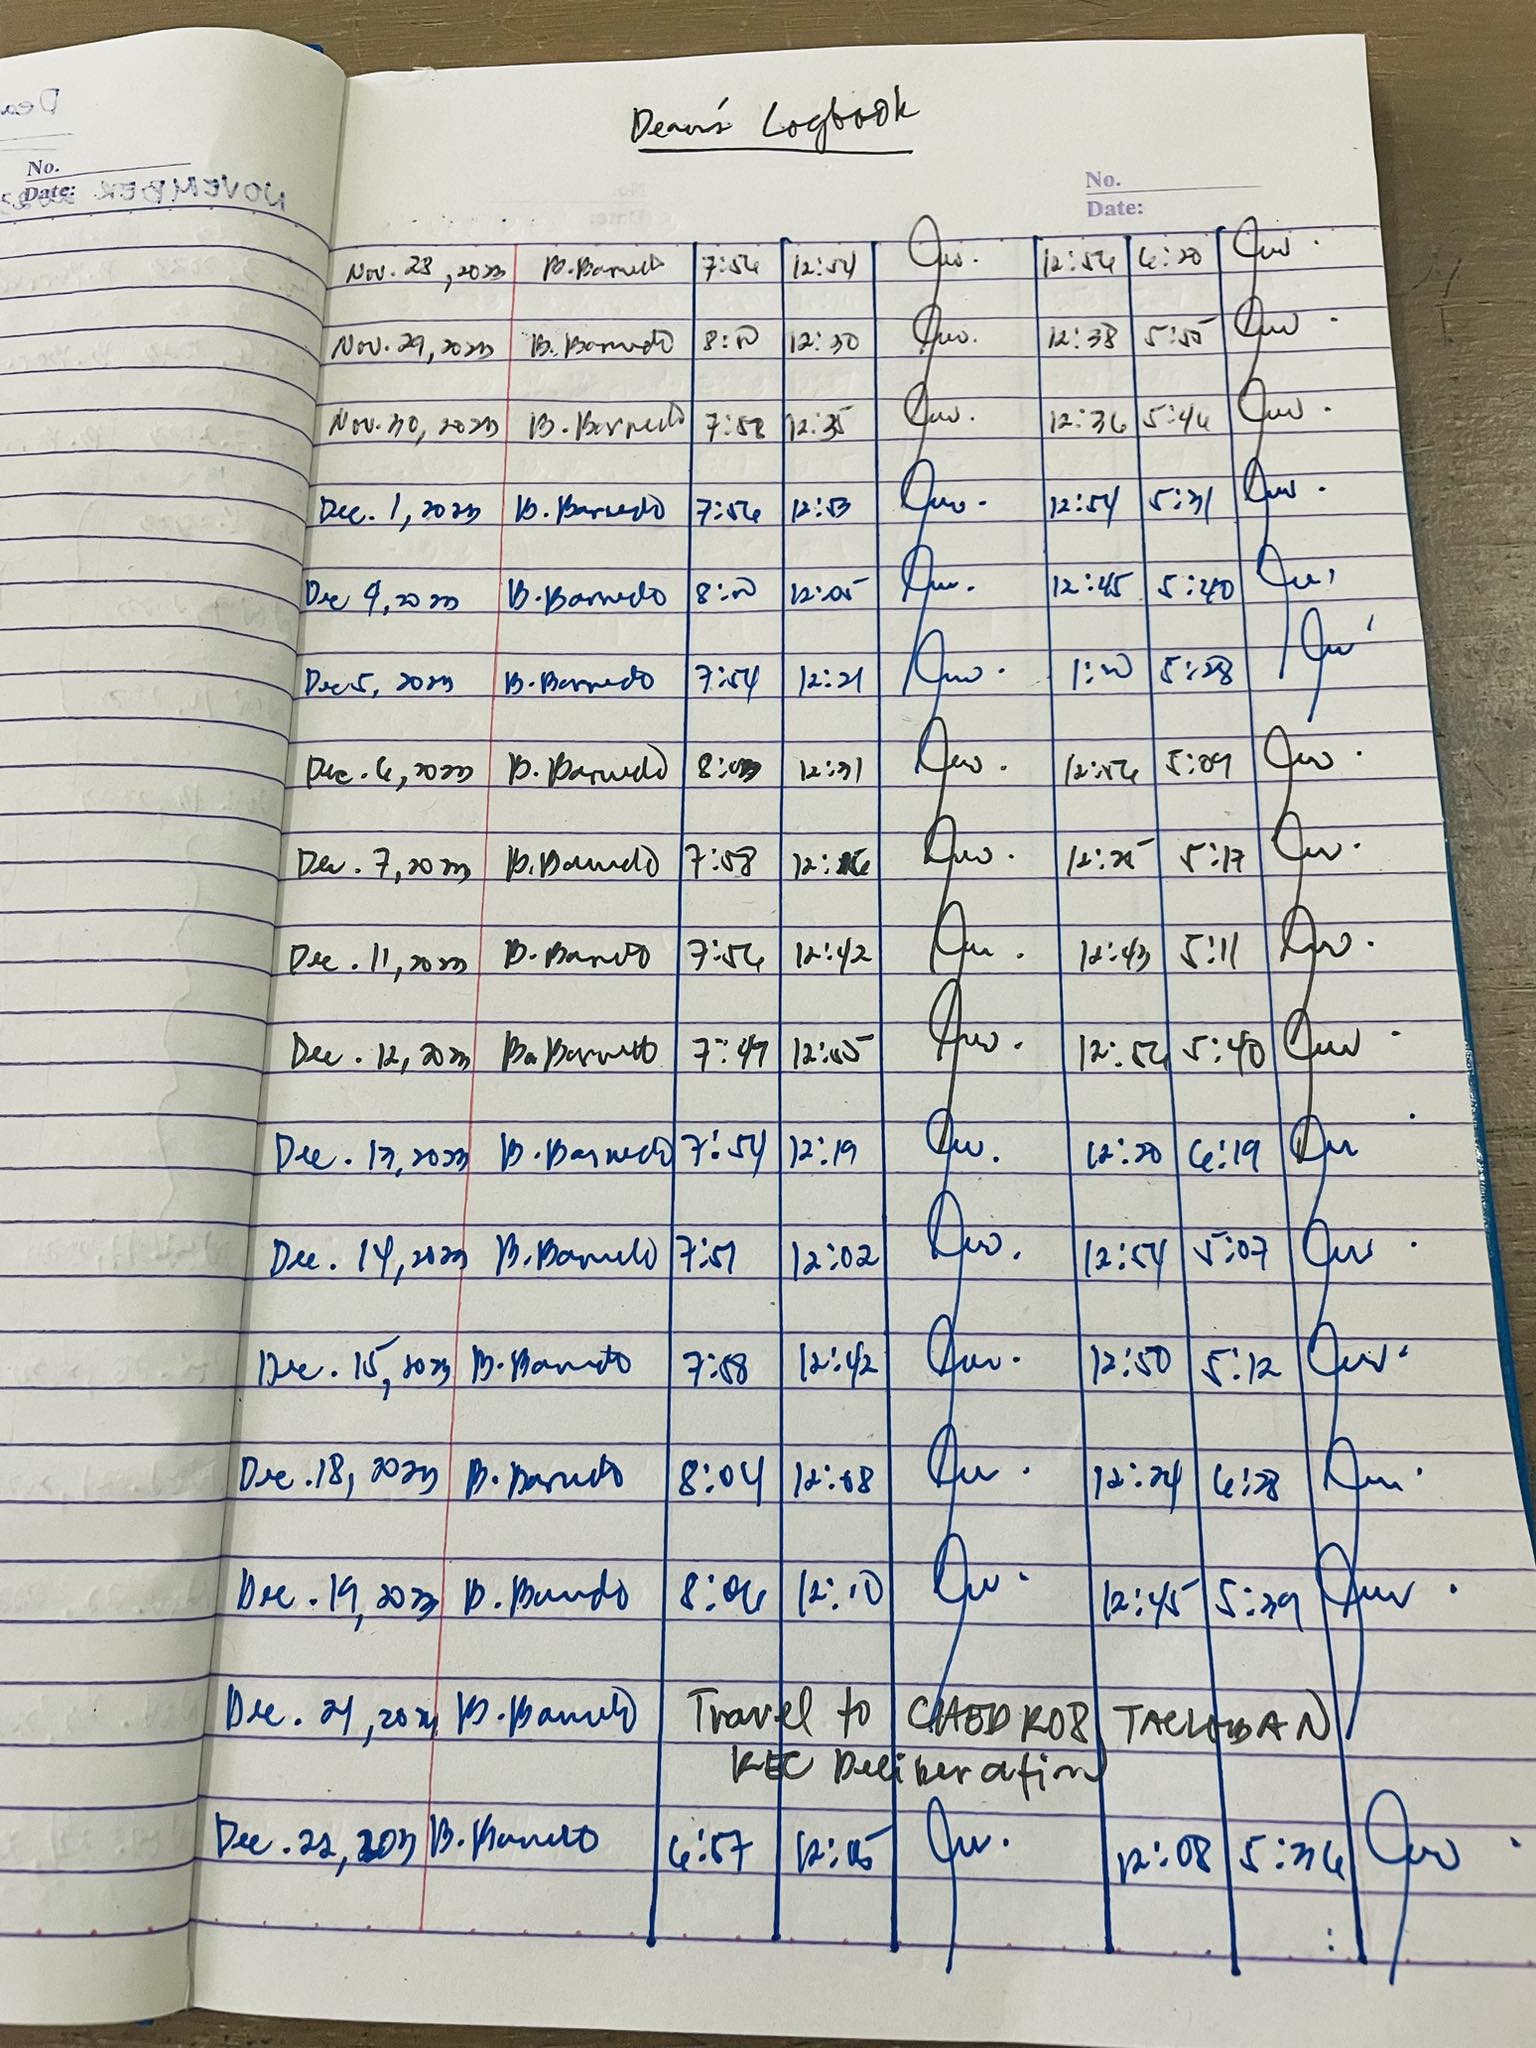 Dean's Logbook
No.
Date:
No.
Date:
NOVEMBER
Nov. 28, 2023 B. Barnedo 7:56 12:54 12:56 6:20
Nov. 29, 2023 B. Barnedo 8:00 12:30 12:38 5:55
Nov. 30, 2023 B. Barnedo 7:58 12:35 12:36 5:46
Dec. 1, 2023 B. Barnedo 7:56 12:53 12:54 5:31
Dec 4, 2023 B. Barnedo 8:00 12:05 12:45 5:40
Dec 5, 2023 B. Barnedo 7:54 12:21 1:00 5:28
Dec. 6, 2023 B. Barnedo 8:03 12:31 12:56 5:09
Dec. 7, 2023 B. Barnedo 7:58 12:25 5:17
Dec. 11, 2023 B. Barnedo 7:56 12:42 12:43 5:11
Dec. 12, 2023 B. Barnedo 7:49 12:05 12:56 5:40
Dec. 13, 2023 B. Barnedo 7:54 12:19 12:20 6:19
Dec. 14, 2023 B. Barnedo 7:51 12:02 12:54 5:07
Dec. 15, 2023 B. Barnedo 7:58 12:42 12:50 5:12
Dec. 18, 2023 B. Barnedo 8:04 12:08 12:24 6:28
Dec. 19, 2023 B. Barnedo 8:06 12:10 12:45 5:39
Dec. 21, 2023 B. Barnedo Travel to CHEDRO8, TACLOBAN
REC Deliberation
Dec. 22, 2023 B. Barnedo 6:57 12:05 12:08 5:36